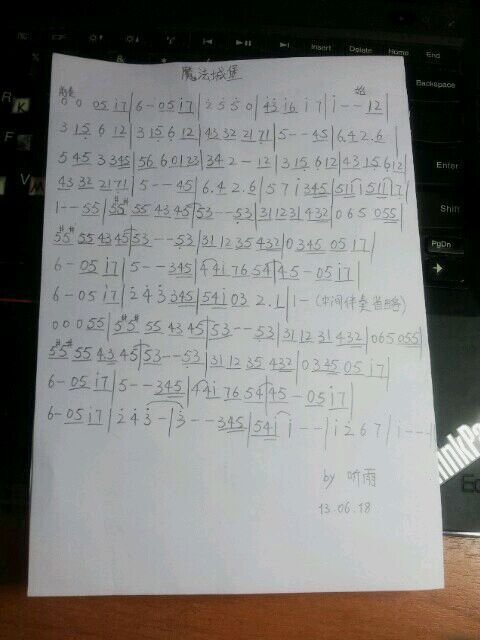 Insert Delete Home End
Backspace
R
K
F
Enter
Shift
PgDn
魔法城堡
前奏 始
0 0 05 i7 | 6 - 05 i7 | 2̇ 5̇ 5̇ 0 | 4̇3̇ i6 i 7 | i - - 12 |
3 15 6 12 | 3 15 6 12 | 43 32 21 71 | 5 - - 45 | 6. 4 2. 6 |
5 45 3 345 | 56 6 0123 | 34 2 - 12 | 3 15 6 12 | 43 15 6 12 |
43 32 21 71 | 5 - - 45 | 6. 4 2. 6 | 5 7 i 345 | 5i i 5i i 7 |
1 - - 55 | 5#5# 55 43 45 | 53 - - 53 | 31 123 1 432 | 0 6 5 055 |
5#5# 55 43 45 | 53 - - 53 | 31 12 35 432 | 0 345 05 i7 |
6 - 05 i7 | 5 - - 345 | 4 4i 76 54 | 45 - 05 i7 |
6 - 05 i7 | 2̇ 4̇ 3̇ 345 | 54i 03 2. 1 | 1 - (中间伴奏省略)
0 0 0 55 | 5#5# 55 43 45 | 53 - - 53 | 31 12 31 432 | 065 055 |
5#5# 55 43 45 | 53 - - 53 | 31 12 35 432 | 0 345 05 i7 |
6 - 05 i7 | 5 - - 345 | 4 4i 76 54 | 45 - 05 i7 |
6 - 05 i7 | 2̇ 4̇ 3̇ - | 3̇ - - 345 | 54i i - - | i 2̇ 6 7 | i - - - |
by 听雨
13.06.18